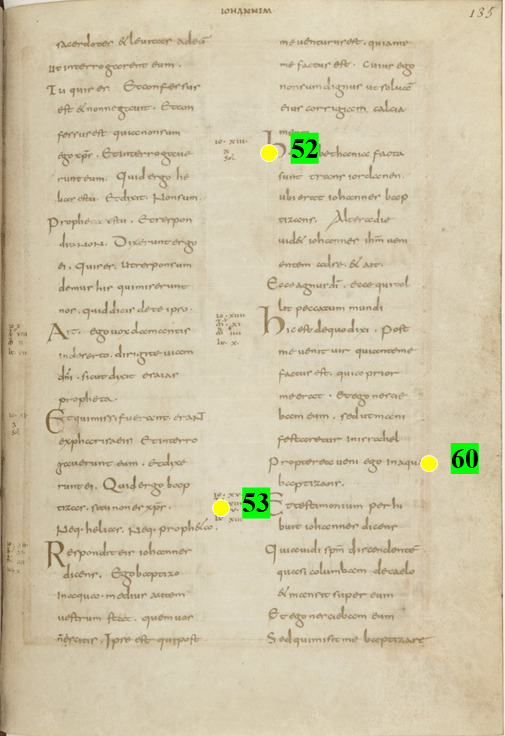 IOHANNEM
135
sacerdotes & leuitas ad eū
ut interrogarent eum.
Tu quis es. Et confessus
est & non negauit. Et con
fessus est quia non sum
ego xp̄s. Et interrogaue
runt eum. Quid ergo he
lias es tu. Et dixit. Non sum.
Propheta es tu. Et respon
dit. NON. Dixerunt ergo
ei. Quis es. ut responsum
demus his qui miserunt
nos. quid dicis de te ipso.
Ait. ego uox clamantis
in deserto. dirigite uiam
dn̄i. sicut dixit esaias
propheta.
Et qui missi fuerant. erant
ex pharisaeis. Et interro
gauerunt eum. et dixe
runt ei. Quid ergo bap
tizas. si tu non es xp̄s.
Neq. helias. Neq. propheta.
Respondit eis iohannes
dicens. Ego baptizo
in aqua. medius autem
uestrum stat. quem uos
n̄ scitis. Ipse est qui post
me uenturus est. qui ante
me factus est. Cuius ego
non sum dignus ut soluā
eius corrigiam calcia
io. XIII.
52
bethania facta
sunt trans iordanen.
ubi erat iohannes bap
tizans. Altera die
uidet iohannes ih̄m ueni
entem ad se. & ait.
Ecce agnus dī. ecce qui tol
lit peccatum mundi
io. XIIII
Hic est de quo dixi. Post
me uenit uir qui ante me
factus est. quia prior
me erat. et ego nescie
bam eum. sed ut mani
festaretur in israhel
Propterea ueni ego in aqua
60
baptizans.
io. XV
53
Et testimonium perhi
buit iohannes dicens
Quia uidi sp̄m discendente
quasi columbam de caelo
& mansit super eum
Et ego nesciebam eum
Sed qui misit me baptizare